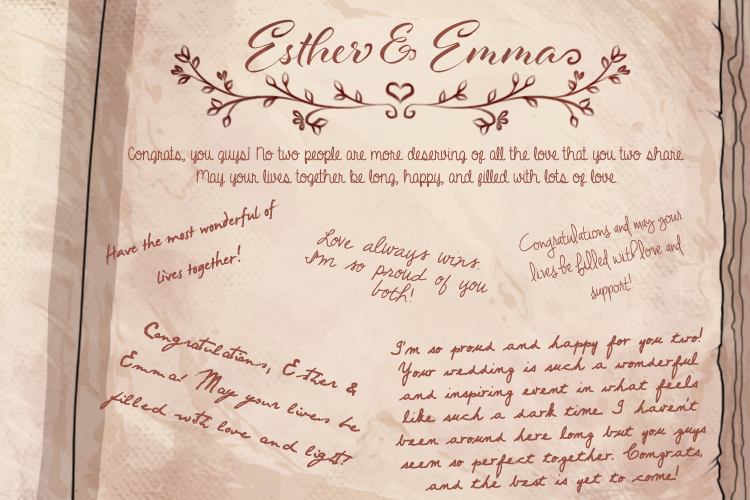 Esther & Emma
Congrats, you guys! No two people are more deserving of all the love that you two share.
May your lives together be long, happy, and filled with lots of love.
Have the most wonderful of
lives together!
Love always wins.
I'm so proud of you
both!
Congratulations and may your
lives be filled with love and
support!
Congratulations, Esther &
Emma! May your lives be
filled with love and light!
I'm so proud and happy for you two!
Your wedding is such a wonderful
and inspiring event in what feels
like such a dark time. I haven't
been around here long but you guys
seem so perfect together. Congrats,
and the best is yet to come!